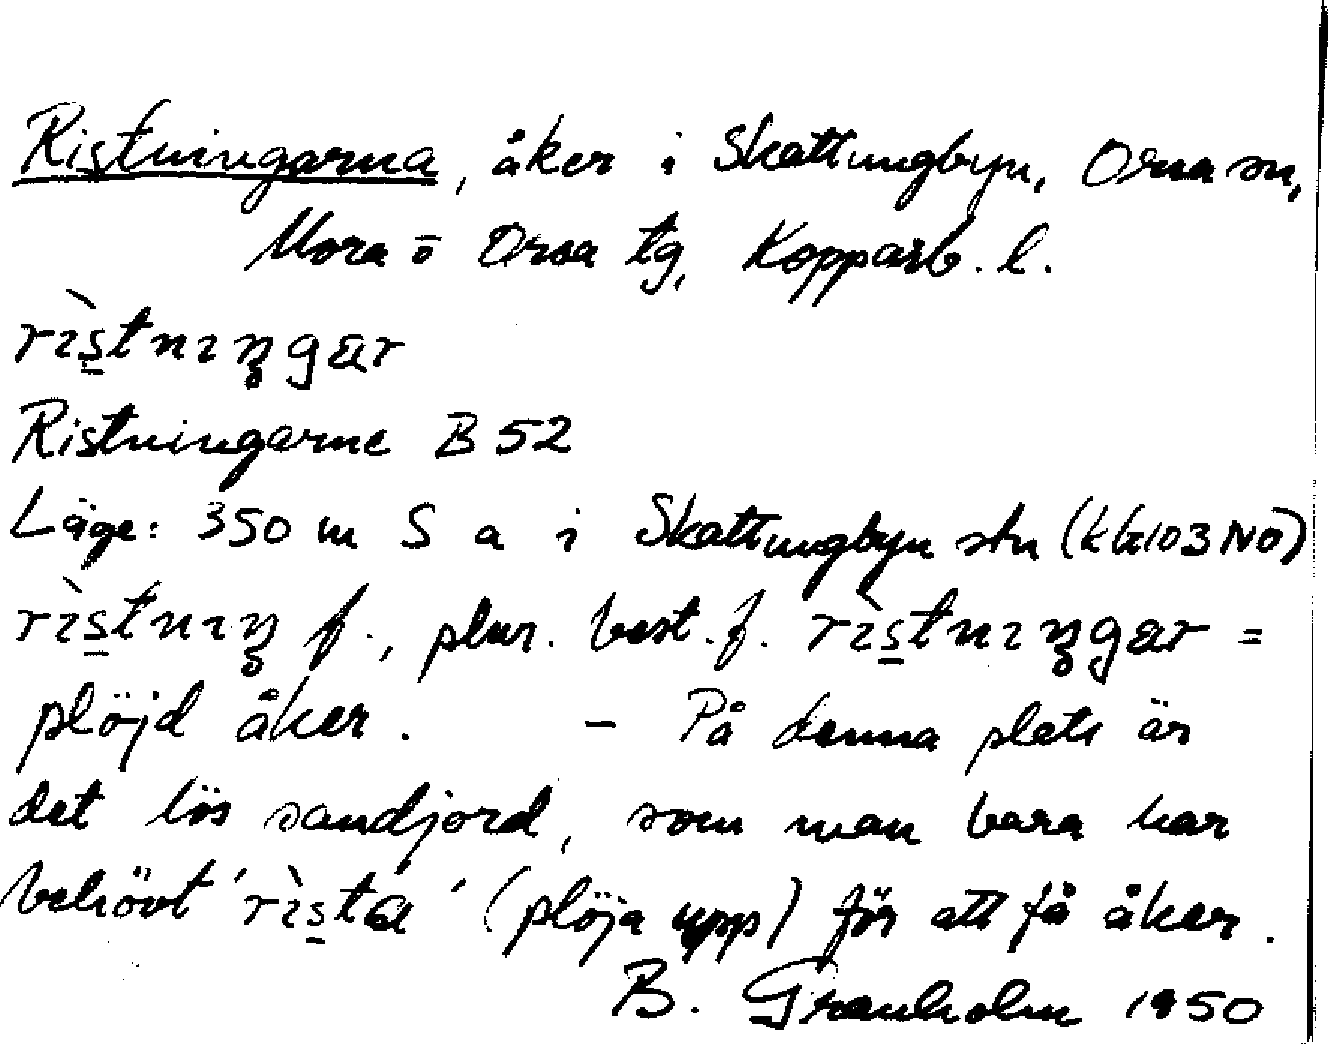 Ristningarna, åker i Skattungbyn, Orsa sn,
Mora o Orsa tg, Kopparb. l.
rìs̠tnıŋgar
Ristningarne B 52
Läge: 350 m S a i Skattungbyn stn (kbl 103 NO)
rìs̠tnıŋ f., plur. best. f. rìs̠tnıŋgar =
plöjd åker. – På denna plats är
det lös sandjord, som man bara har
behövt ´rìs̠ta´ (plöja upp) för att få åker.
B. Granholm 1950